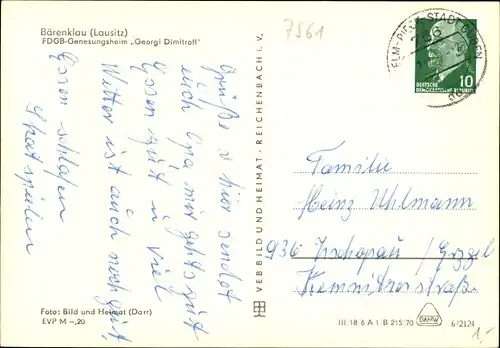 Bärenklau (Lausitz)
FDGB-Genesungsheim „Georgi Dimitroff"
7561
ELM-PIECK-STADT GUBEN
DEUTSCHE
DEMOKRATISCHE REPUBLIK
10
Grüße v hier sendet
euch Opa mir gehts gut
Essen gut u viel
Wetter ist auch noch gut
Essen schlafen
Skat spielen
VEB BILD UND HEIMAT · REICHENBACH i. V.
Familie
Heinz Uhlmann
936 Zschopau / Erzgeb
Chemnitzerstraße
Foto: Bild und Heimat (Darr)
EVP M –,20
III 18 6 A 1 B 215/70
DAMW
6/2124
1,-